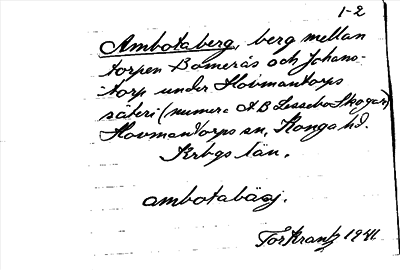 1-2
Ambotaberg, berg mellan
torpen Bomerås och Johans-
torp under Hovmantorps
säteri (numera AB Lessebo Skogar)
Hovmantorps sn, Konga hd.
Krbgs län.
ambotabäŋ.
Tor Krantz 1941